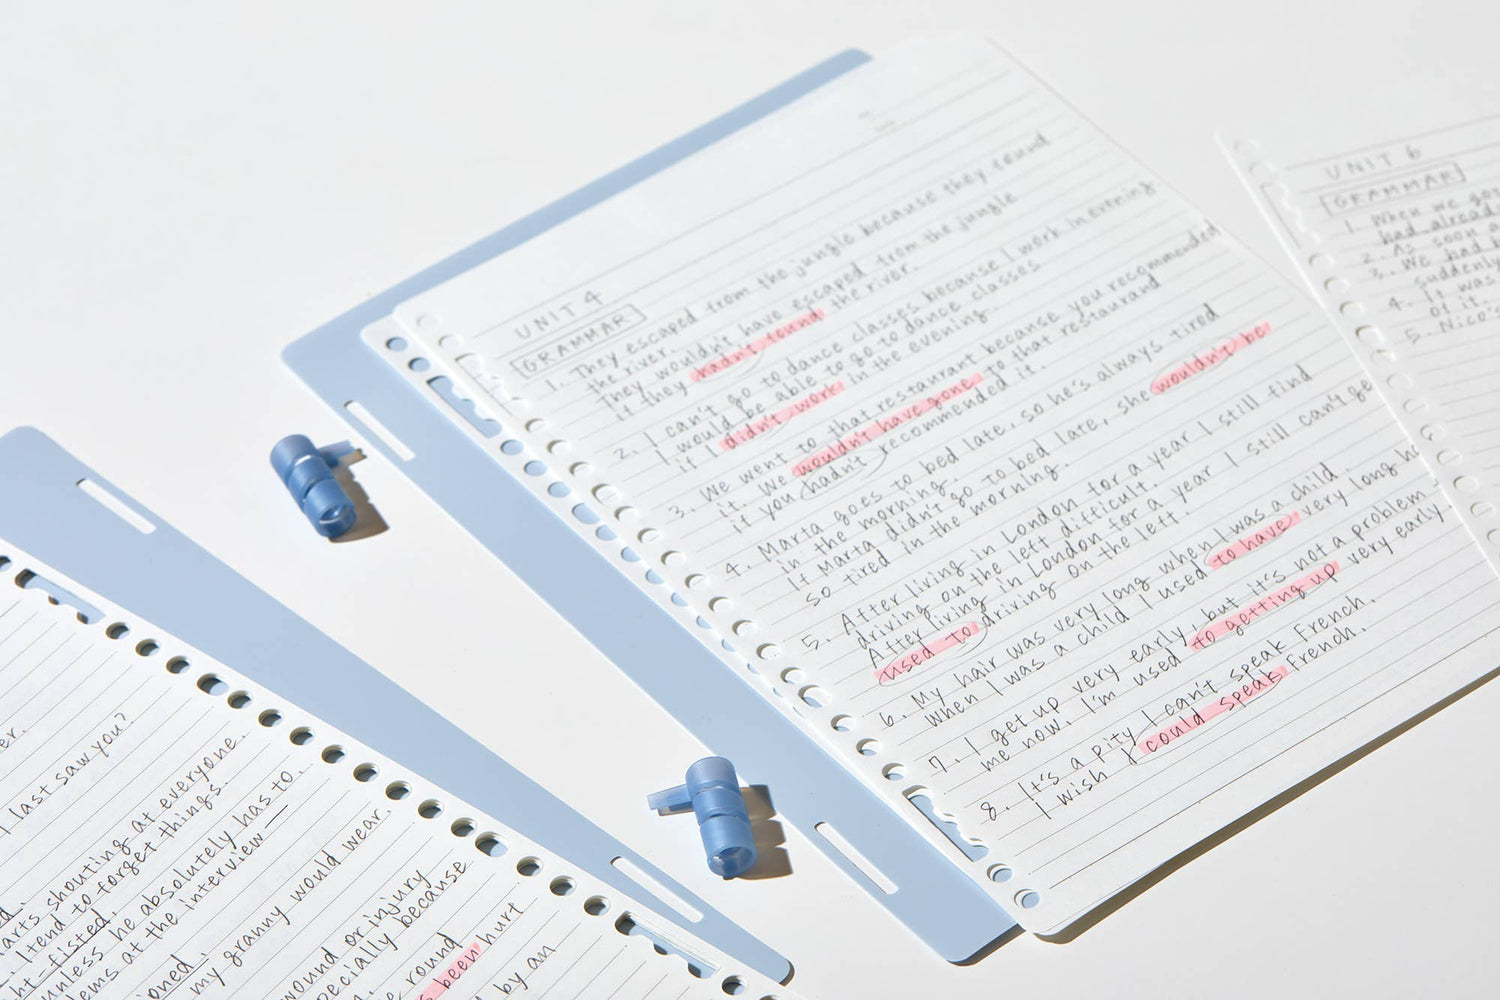 UNIT 4
GRAMMAR
1. They escaped from the jungle because they found
the river.
They wouldn't have escaped from the jungle
if they hadn't found the river.
2. I can't go to dance classes because I work in evening
I would be able to go to dance classes
if I didn't work in the evening.
3. We went to that restaurant because you recommended
it. We wouldn't have gone to that restaurand
if you hadn't recommended it.
4. Marta goes to bed late, so he's always tired
in the morning.
If Marta didn't go to bed late, she wouldn't be
so tired in the morning.
5. After living in London for a year I still find
driving on the left difficult.
After living in London for a year I still can't ge
used to driving on the left.
6. My hair was very long when I was a child.
When I was a child I used to have very long h
7. I get up very early, but it's not a problem
me now. I'm used to getting up very early
8. It's a pity I can't speak French.
I wish I could speak French.
UNIT 6
GRAMMAR
1. When we go
had alread
2. As soon a
3. We had b
suddenly
4. It was
of it.
5. Nico's
er.
I last saw you?
d.
arts shouting at everyone.
. I tend to forget things.
ht-fisted.
unless he absolutely has to.
lems at the interview
ioned.
my granny would wear.
wound or injury
pecially because
e round
s been hurt
by an